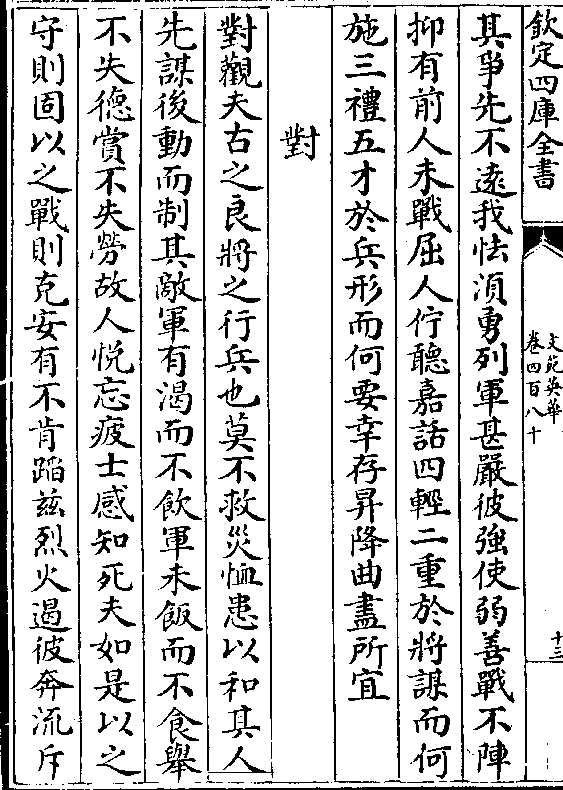 欽定四庫全書
文苑英華
卷四百八十
十三
其爭先不遠我怯湏勇列軍甚嚴彼強使弱善戰不陣
抑有前人未戰屈人佇聽嘉話四輕二重於將謀而何
施三禮五才於兵形而何要幸存昇降曲盡所宜
對
對觀夫古之良將之行兵也莫不救災恤患以和其人
先謀後動而制其敵軍有渴而不飲軍未飯而不食舉
不失德賞不失勞故人悅忘疲士感知死夫如是以之
守則固以之戰則克安有不肯蹈茲烈火遏彼奔流斥